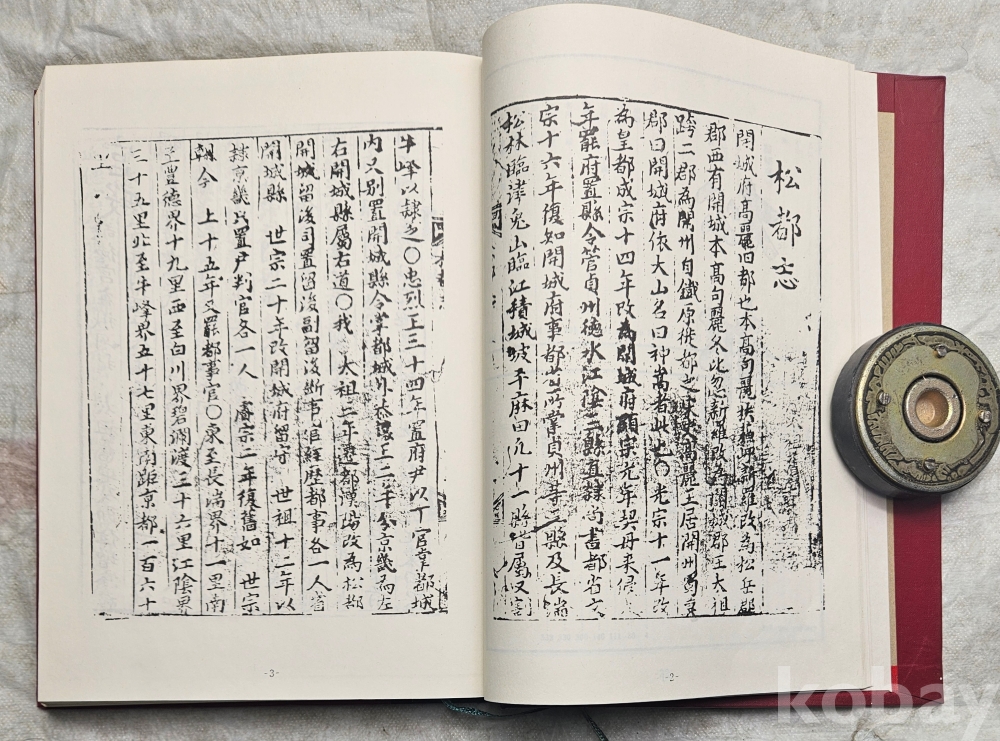 松都志
開城府高麗旧都也本高句麗扶蘓岬新羅改為松岳郡
郡西有開城本高句麗冬比忽新羅改為開城郡王太祖
跨二郡為開州自鐵原徙都之
郡曰開城府依大山名曰神嵩者此也〇光宗十一年改
為皇都成宗十四年改為開城府顯宗元年契丹來侵
年罷府置縣令管貞州德水江陰三縣直隸尚書都省文
宗十六年復知開城府事都省所掌貞州等三縣及長湍
松林臨津兎山臨江積城坡平麻田凡十一縣皆屬又割
-2-
牛峰以隸之〇忠烈王三十四年置府尹以下官掌都城
内又別置開城縣令掌都城外恭讓王二年分京畿為左
右開城縣屬右道〇我 太祖三年遷都漢陽改為松都
開城留後司置留後副留後斷事官経歷都事各一人省
開城縣 世宗二十年改開城府留守 世祖十二年以
隸京畿此置尹判官各一人 睿宗二年復舊如 世宗
朝今 上十五年又罷都事官〇東至長湍界十一里南
至豊德界十九里西至白川界碧瀾渡三十六里江陰界
三十九里北至牛峰界五十七里東南距京都一百六十
-3-
kobay